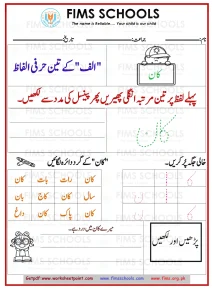 FIMS SCHOOLS
The name is Reliable.... Your child is our child
نام: جماعت: تاریخ:
"الف" کے تین حرفی الفاظ
کان
پہلے لفظ پر تین مرتبہ انگلی پھیریں پھر پینسل کی مدد سے لکھیں۔
کان
"کان" کے گرد دائرہ لگائیں
خالی جگہ پُر کریں۔
کان رات بات کان
سال کان کاج بان
کان پاک کان داغ
ا ا ا
میرے کان میں درد ہے۔
پڑھیں اور لکھیں
Getpdf www.worksheetpoint.com www.fimschools.com www.fims.org.pk